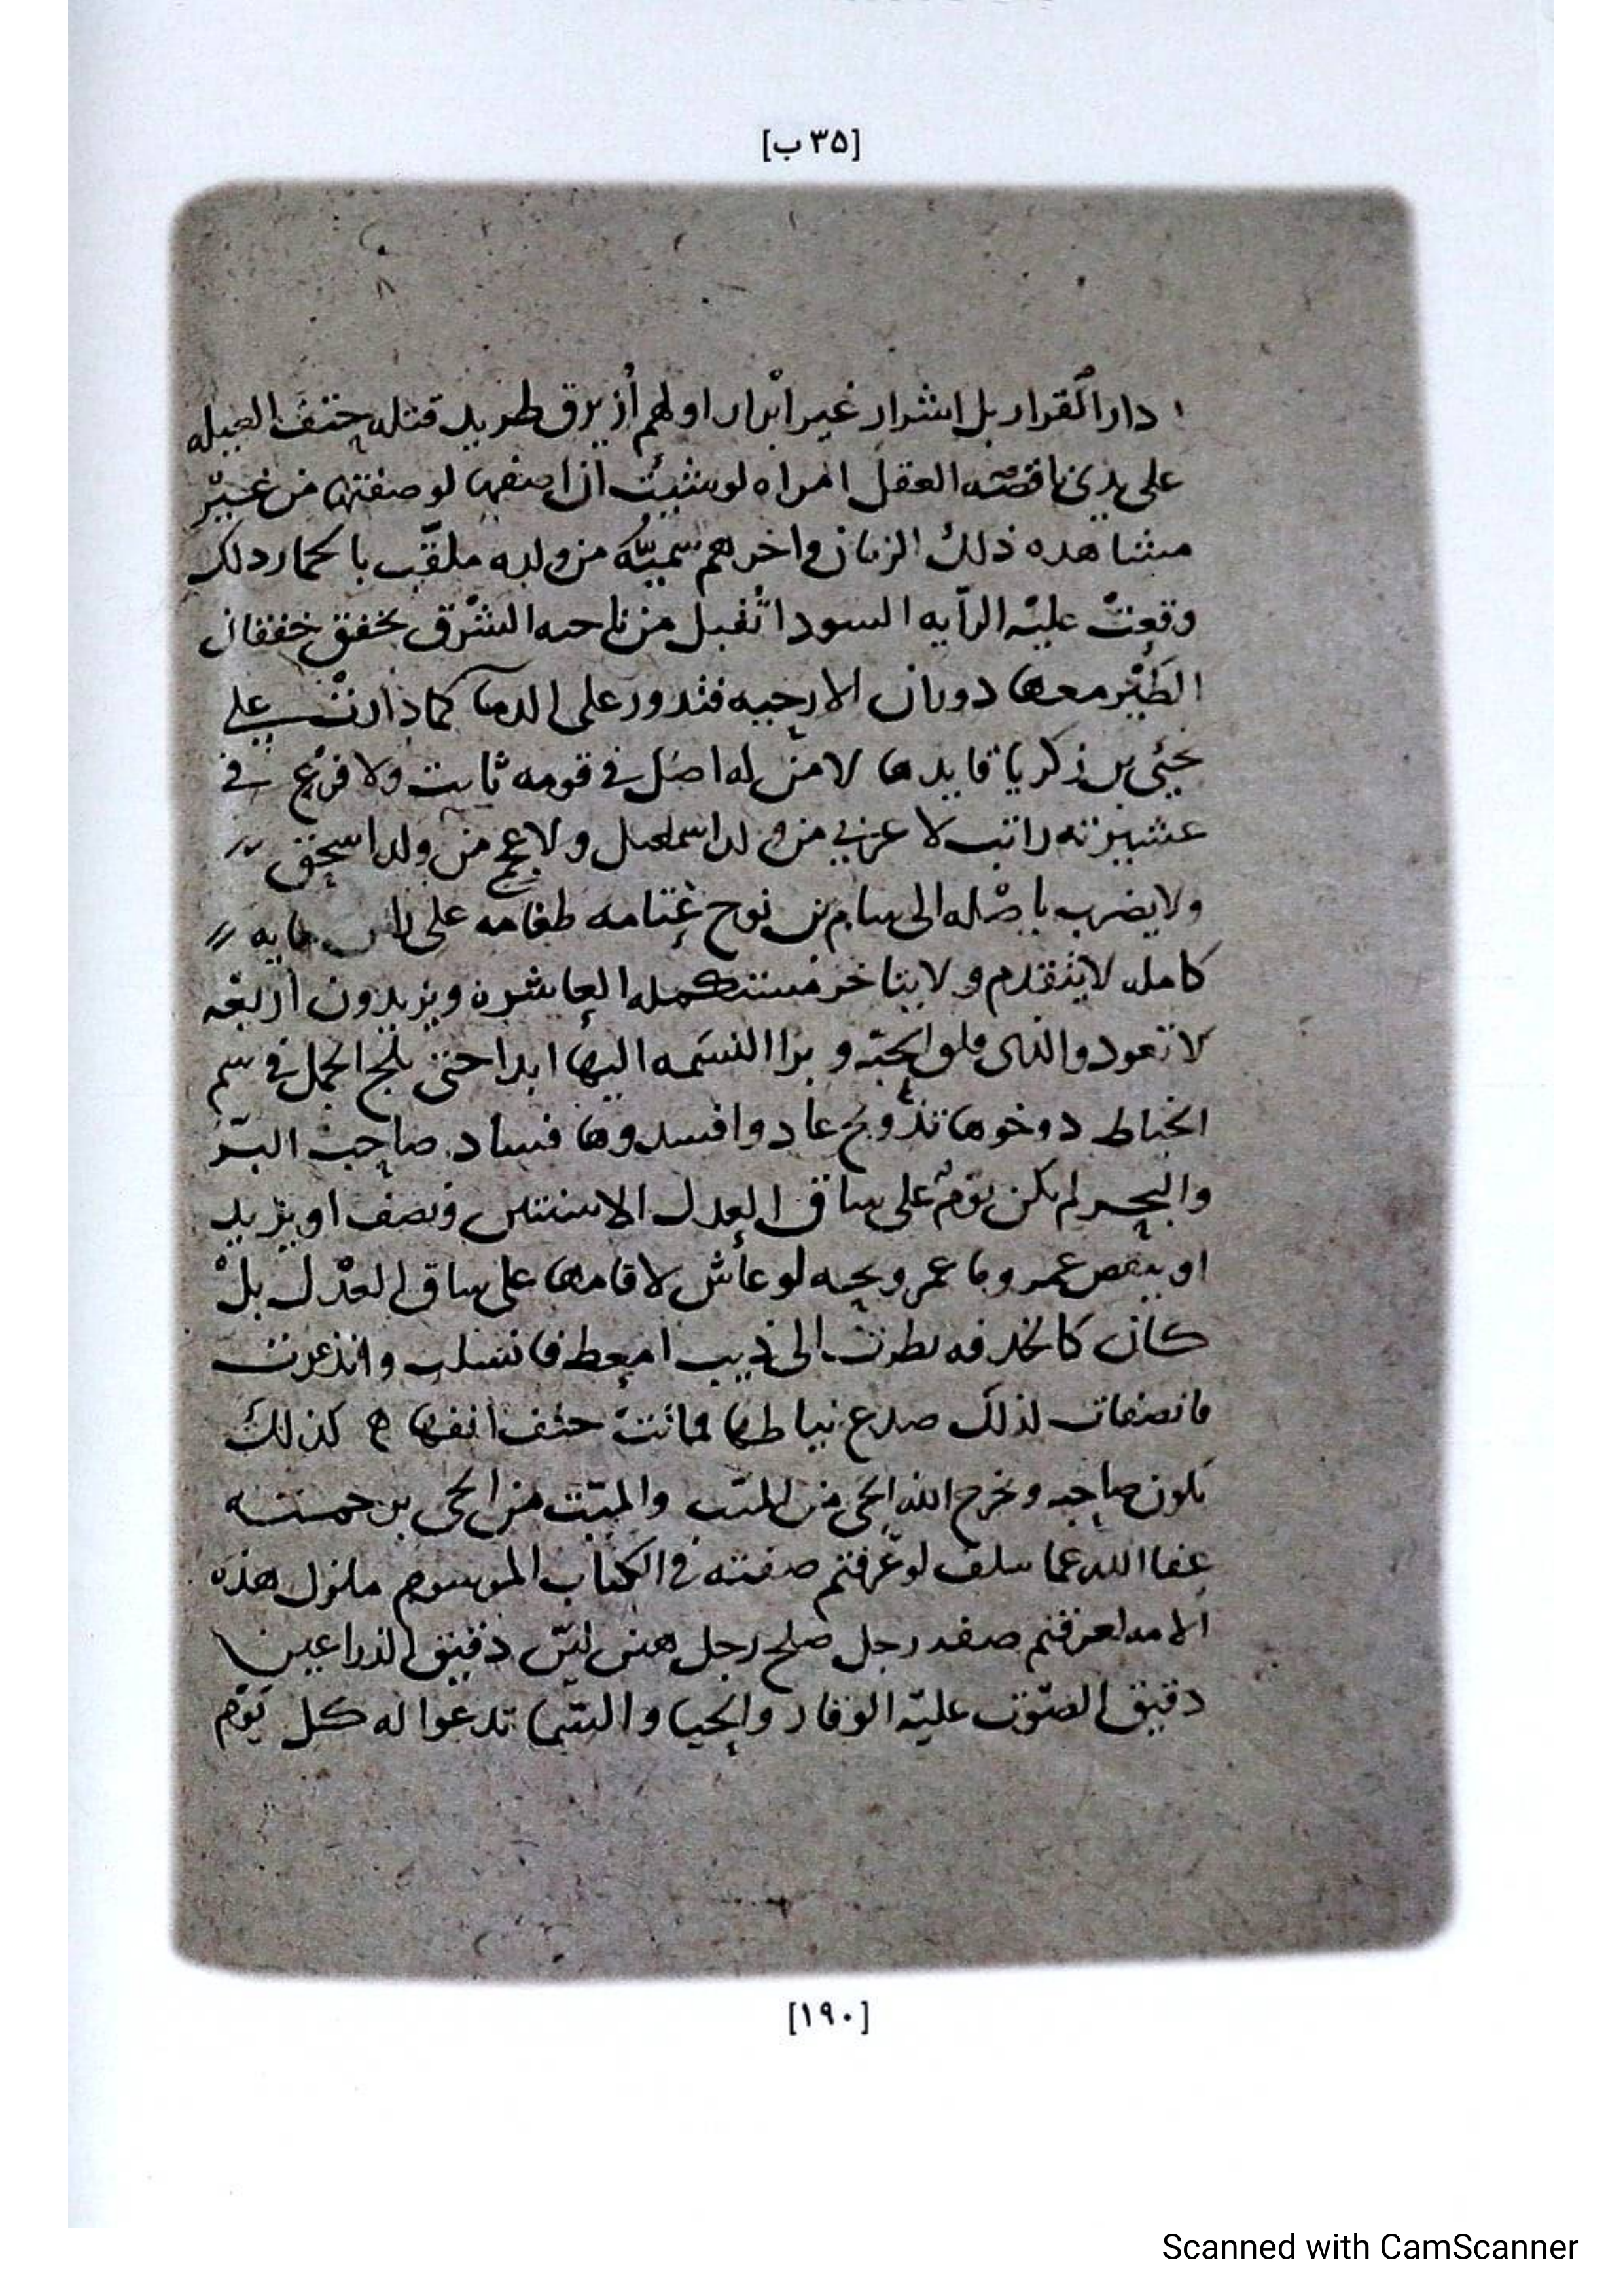 [٣٥ ب]
دار القرار بل اشرار غير ابرار اولهم ازيرق طريد قتله حتف الغيله
على يدي ناقصه العقل امراه لو شيت ان اصفها لوصفتها من غير
مشاهده ذلك الزمان واخرهم سميه من ولده ملقب بالحمار دلك
وقعت عليه الرايه السودا تقبل من ناحيه الشرق تخفق خفقان
الطير معها دوران الارحيه فتدور على الدما كما دارت على
يحيى بن زكريا قايدها لا من له اصل في قومه ثابت ولا فرع في
عشيرته راتب لا عربي من ولد اسمعيل ولا عجمي من ولد اسحق
ولا يضرب باصله الى سام بن نوح طغامه على راس مايه
كامله لا يتقدم ولا يتاخر مستكمله العاشره ويزيدون اربعه
لا تعود والذي فلق الحبه وبرا النسمه اليها ابدا حتى يلج الجمل في سم
الخياط دوخوها تدويخ عاد وافسدوها فساد صاحب البر
والبحر لم يكن يوم على ساق العدل الا سنتين ونصف او يزيد
او ينقص عمر وما عمر ويحه لو عاش لاقامها على ساق العدل بل
كان كالخذفه نظرت الى ذيب امعط فانسلت وانذعرت
فانصفات لذلك صدع نياطها فماتت حتف انفها كذلك
يكون صاحبه ويخرج الله الحي من الميت والميت من الحي
عفا الله عما سلف لو عرفتم صفته في الكتاب الموسوم ملزول هذه
الامه لعرفتم صفه رجل صلح رجل هين لين دقيق الذراعين
دقيق الصوت عليه الوقار والحيا والسيما تدعوا له كل يوم
[١٩٠]
Scanned with CamScanner